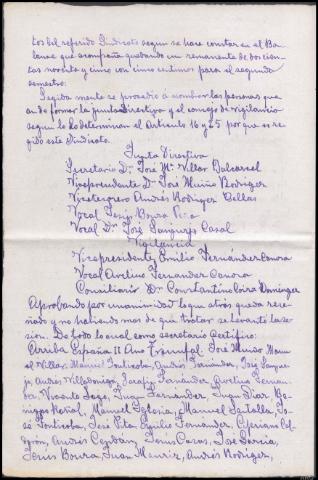 tos del referido Sindicato segun se hace constar en el Ba-
lance que acompaña quedando un remanente de dorcien-
tas noventa y cinco con cinco centimos para el segundo
semestre.
Seguidamente se procedió a nombrar las personas que
an de formar la junta Directiva y el consejo de vigilancia
segun lo determinan el Articulo 16 y 25 por que se re-
gido este Sindicato.
Junta Directiva
Secretario Dn José Mª Villar Balcarsel
Vicepresidente Dn José Muiño Rodriguez
Vicetesorero Andrés Rodriguez Bellas
Vocal Jesus Boura
Vocal Dn José Casal
Vigilancia
Vicepresidente Emilio Fernández Canora
Vocal Avelino Fernandez Canora
Consiliario Dr Constantino Coira Dominguez
Aprobando por unanimidad lo que atrás queda rese-
ñado y no habiendo mas de que tratar se levanta la se-
sion. De todo lo cual como secretario Certifico:
Arriba España II Año Triunfal. José Muiño Manu-
el Villar, Manuel Fonticoba, Andrés Fernández, José
Andres Villadoniga, Serafin Fernández Avelino Fernan-
dez, Vicente Lago, Juan Fernández, Juan Diaz, Be-
nigno Manuel Iglesia, Manuel Jo-
sé Fonticoba, José Pita Emilio Fernandez, Cipriano Cal-
Andrés Jesús Casas, José Garcia,
Jesus Boura, Juan Andrés Rodriguez,